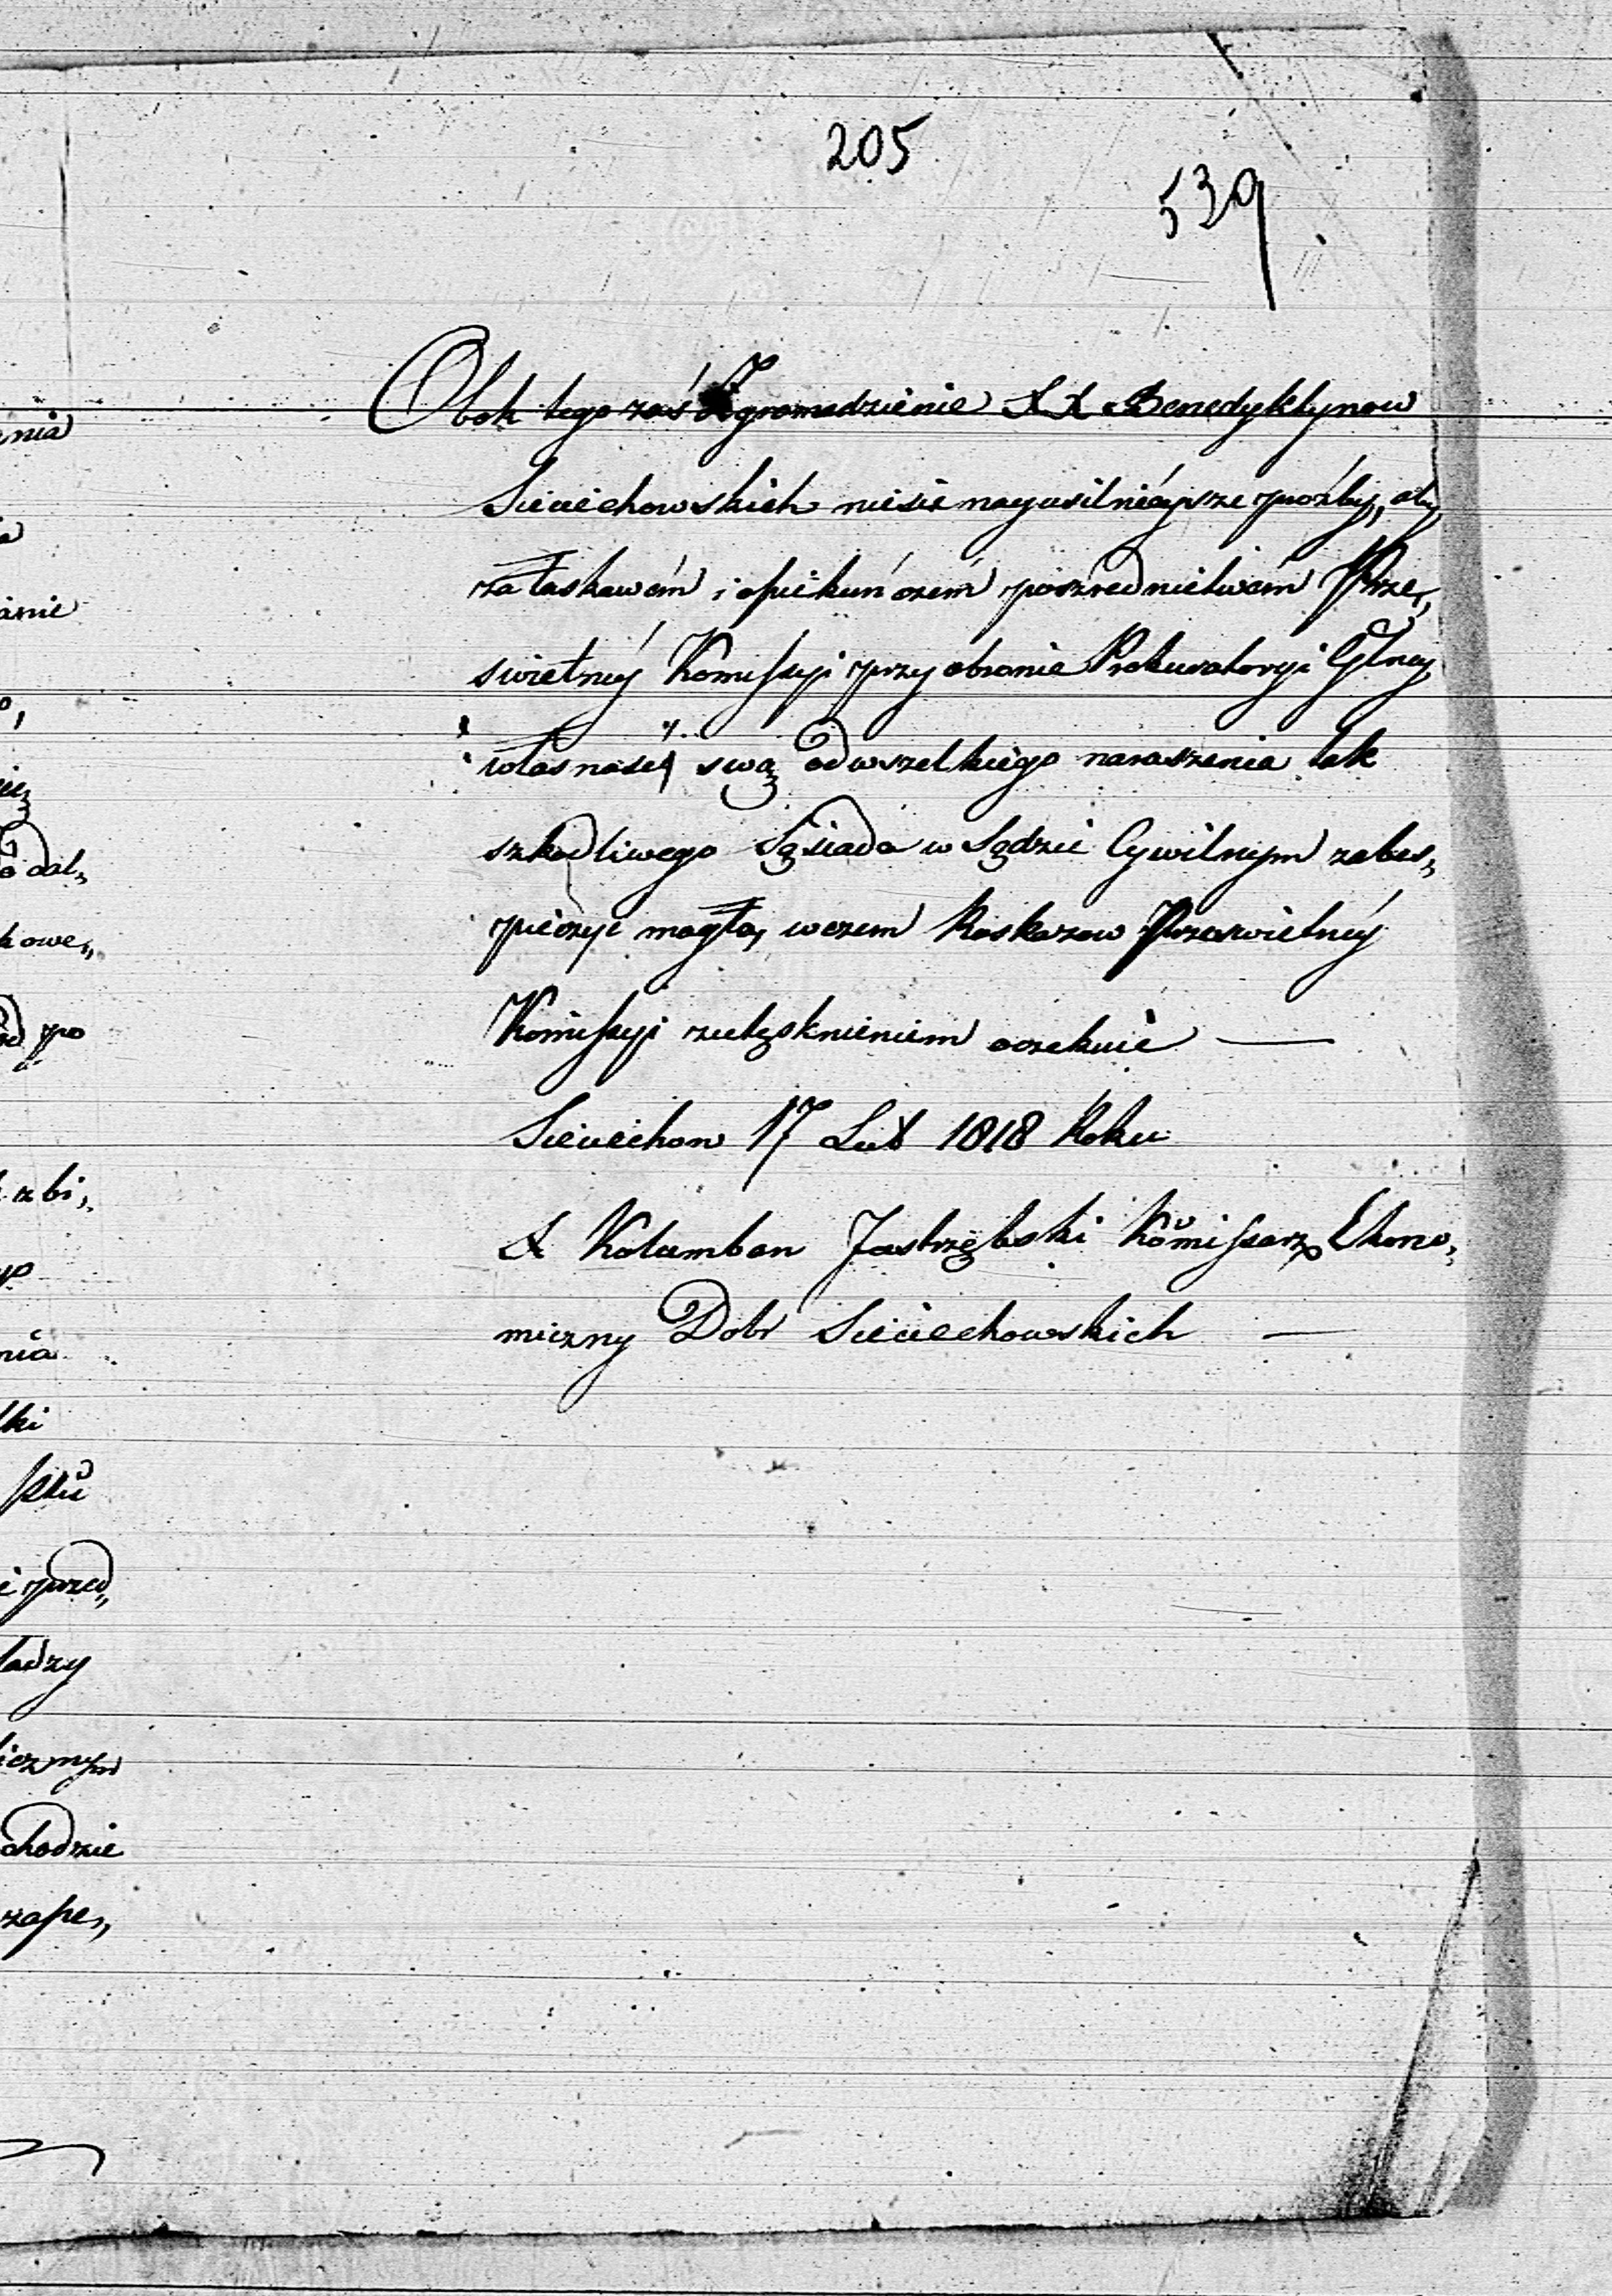 205
539
Obok tego zaś Zgromadzenie XX Benedyktynow
Sieciechowskich niesie nayusilnieysze proźby, aby
za łaskawém i opiekuńczém poszrednictwem Prze„
swietnéy Komissyi przy obronie Prokuratoryi Glney
własność swą od wszelkiego naruszenia tak
szkodliwego Sąsiada w Sądzie Cywilnym zabes„
pieczyć mogło, wczem Roskazow Prześwietnéy
Komissyi zutęsknieniem oczekuie —
Sieciechow 17 Lut 1818 Roku
X Kolumban Jastrzębski Kommissarz Ekono„
miczny Dobr Sieciechowskich —
nia
anie
dal„
kowe„
po
zbi„
nia
ki
przed„
ladzy
icznym
chodzie
zape„